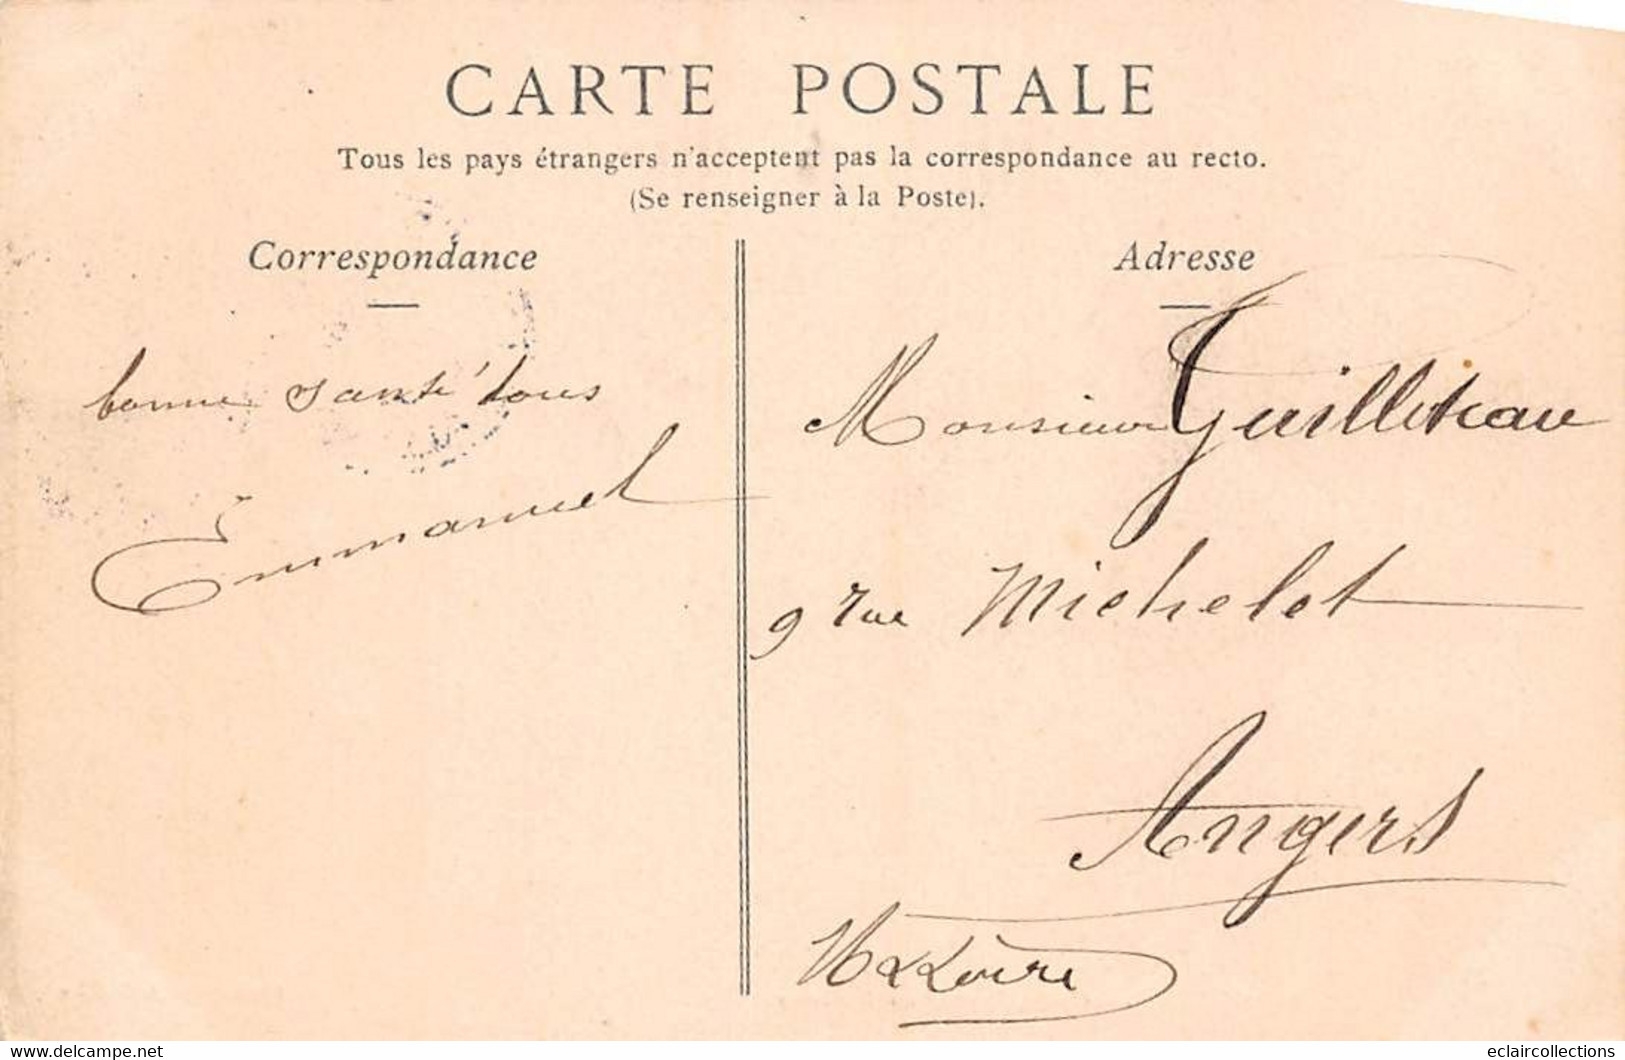 CARTE POSTALE
Tous les pays étrangers n'acceptent pas la correspondance au recto.
(Se renseigner à la Poste).
Correspondance
Adresse
bonne santé tous
Emmanuel
Monsieur Guilleteau
9 rue Michelet
Angers
M & Loire
delcampe.net
eclaircollections